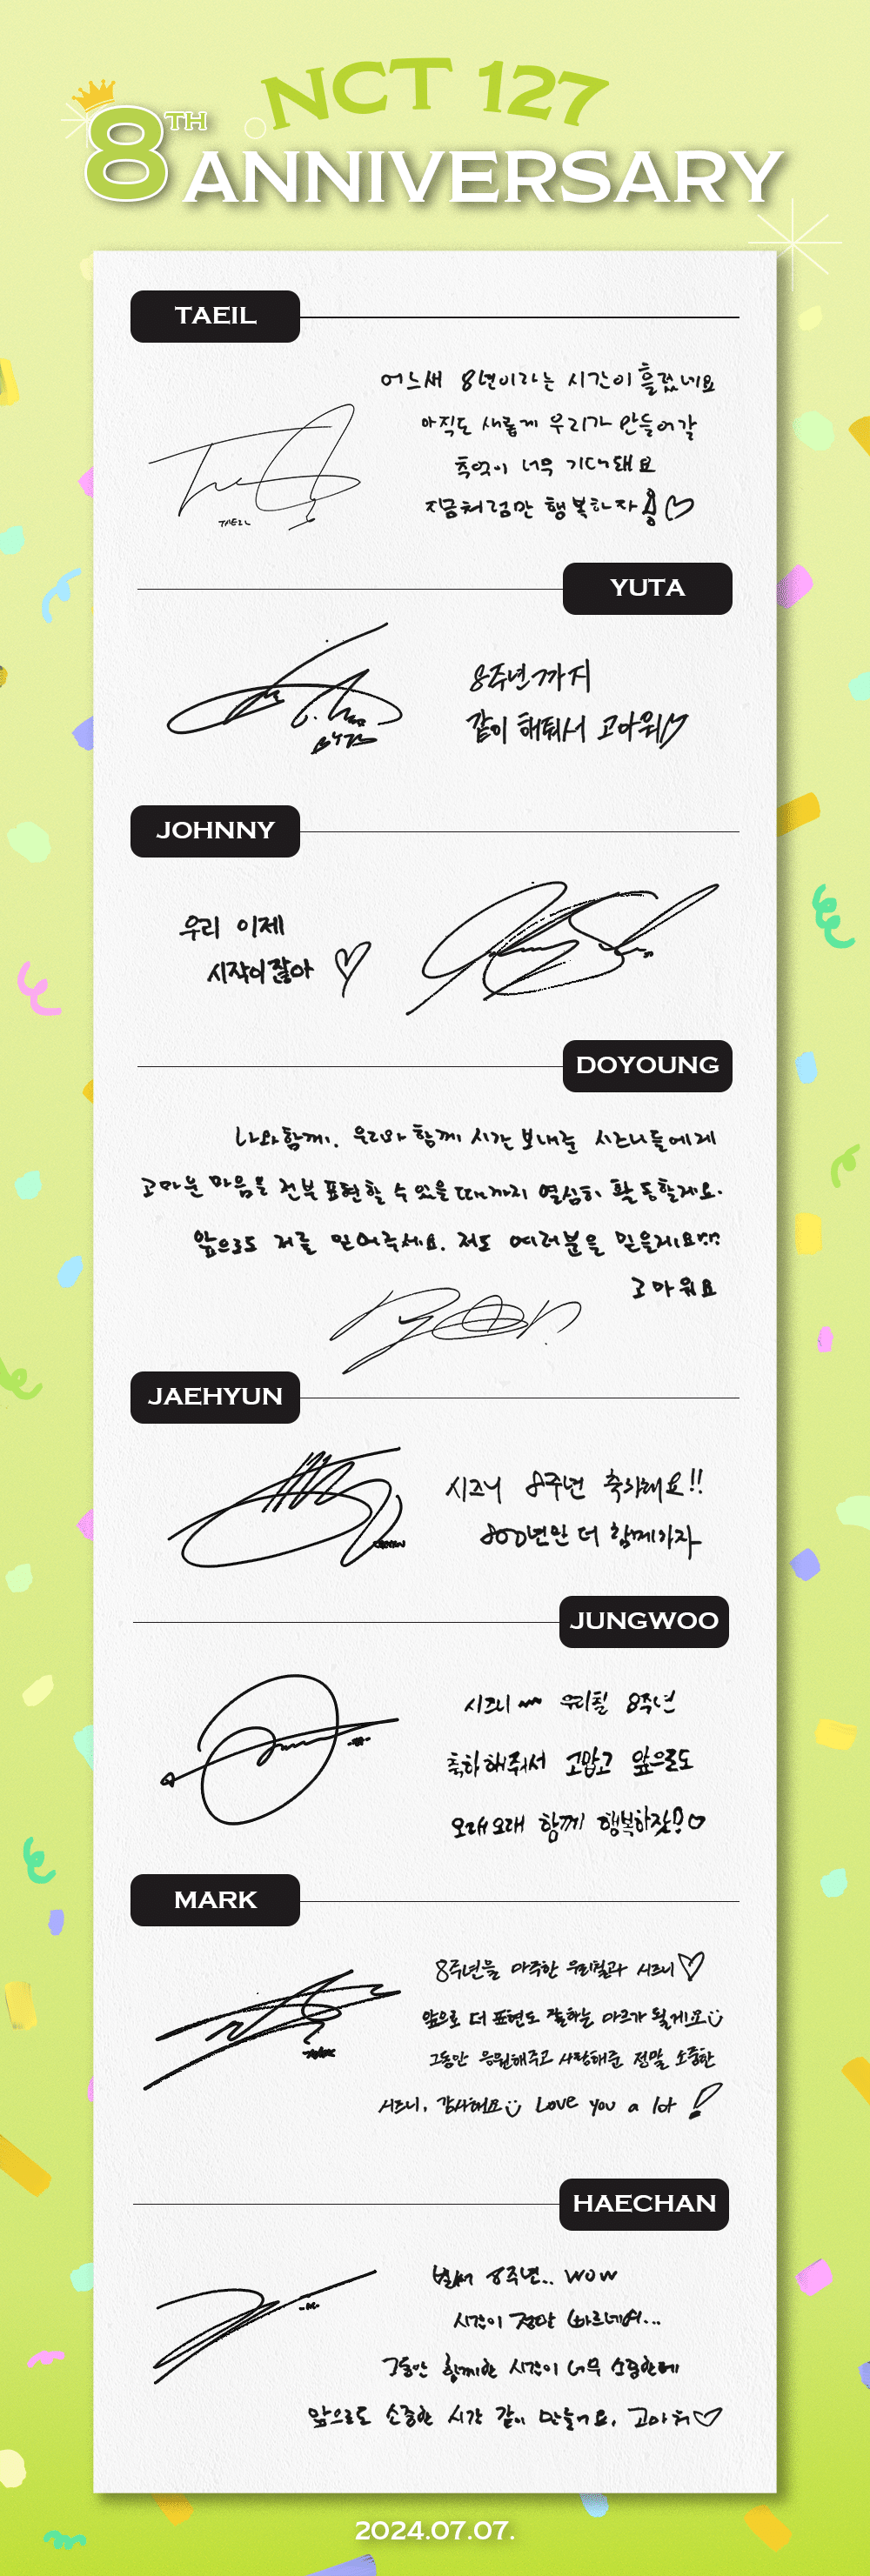 NCT 127
8TH ANNIVERSARY
TAEIL
어느새 8년이라는 시간이 흘렀네요
아직도 새롭게 우리가 만들어갈
추억이 너무 기대돼요
지금처럼만 행복하자!♡
TAEIL
YUTA
8주년까지
같이 해줘서 고마워♡
JOHNNY
우리 이제
시작이잖아 ♡
DOYOUNG
나와함께, 우리와 함께 시간 보내준 시즈니들에게
고마운 마음을 전부 표현할 수 있을 때까지 열심히 활동할게요.
앞으로도 저를 믿어주세요. 저도 여러분을 믿을게요!!
고마워요
JAEHYUN
시즈니 8주년 축하해요!!
800년만 더 함께하자
JUNGWOO
시즈니~ 우리칠 8주년
축하해줘서 고맙고 앞으로도
오래오래 함께 행복하잣!!♡
MARK
8주년을 마주한 우리칠과 시즈니♡
앞으로 더 표현도 잘하는 마크가 될게요
그동안 응원해주고 사랑해준 정말 소중한
시즈니, 감사해요 Love you a lot !
HAECHAN
벌써 8주년.. WOW
시간이 정말 빠르네여...
그동안 함께한 시간이 너무 소중한데
앞으로도 소중한 시간 같이 만들어요, 고마워♡
2024.07.07.